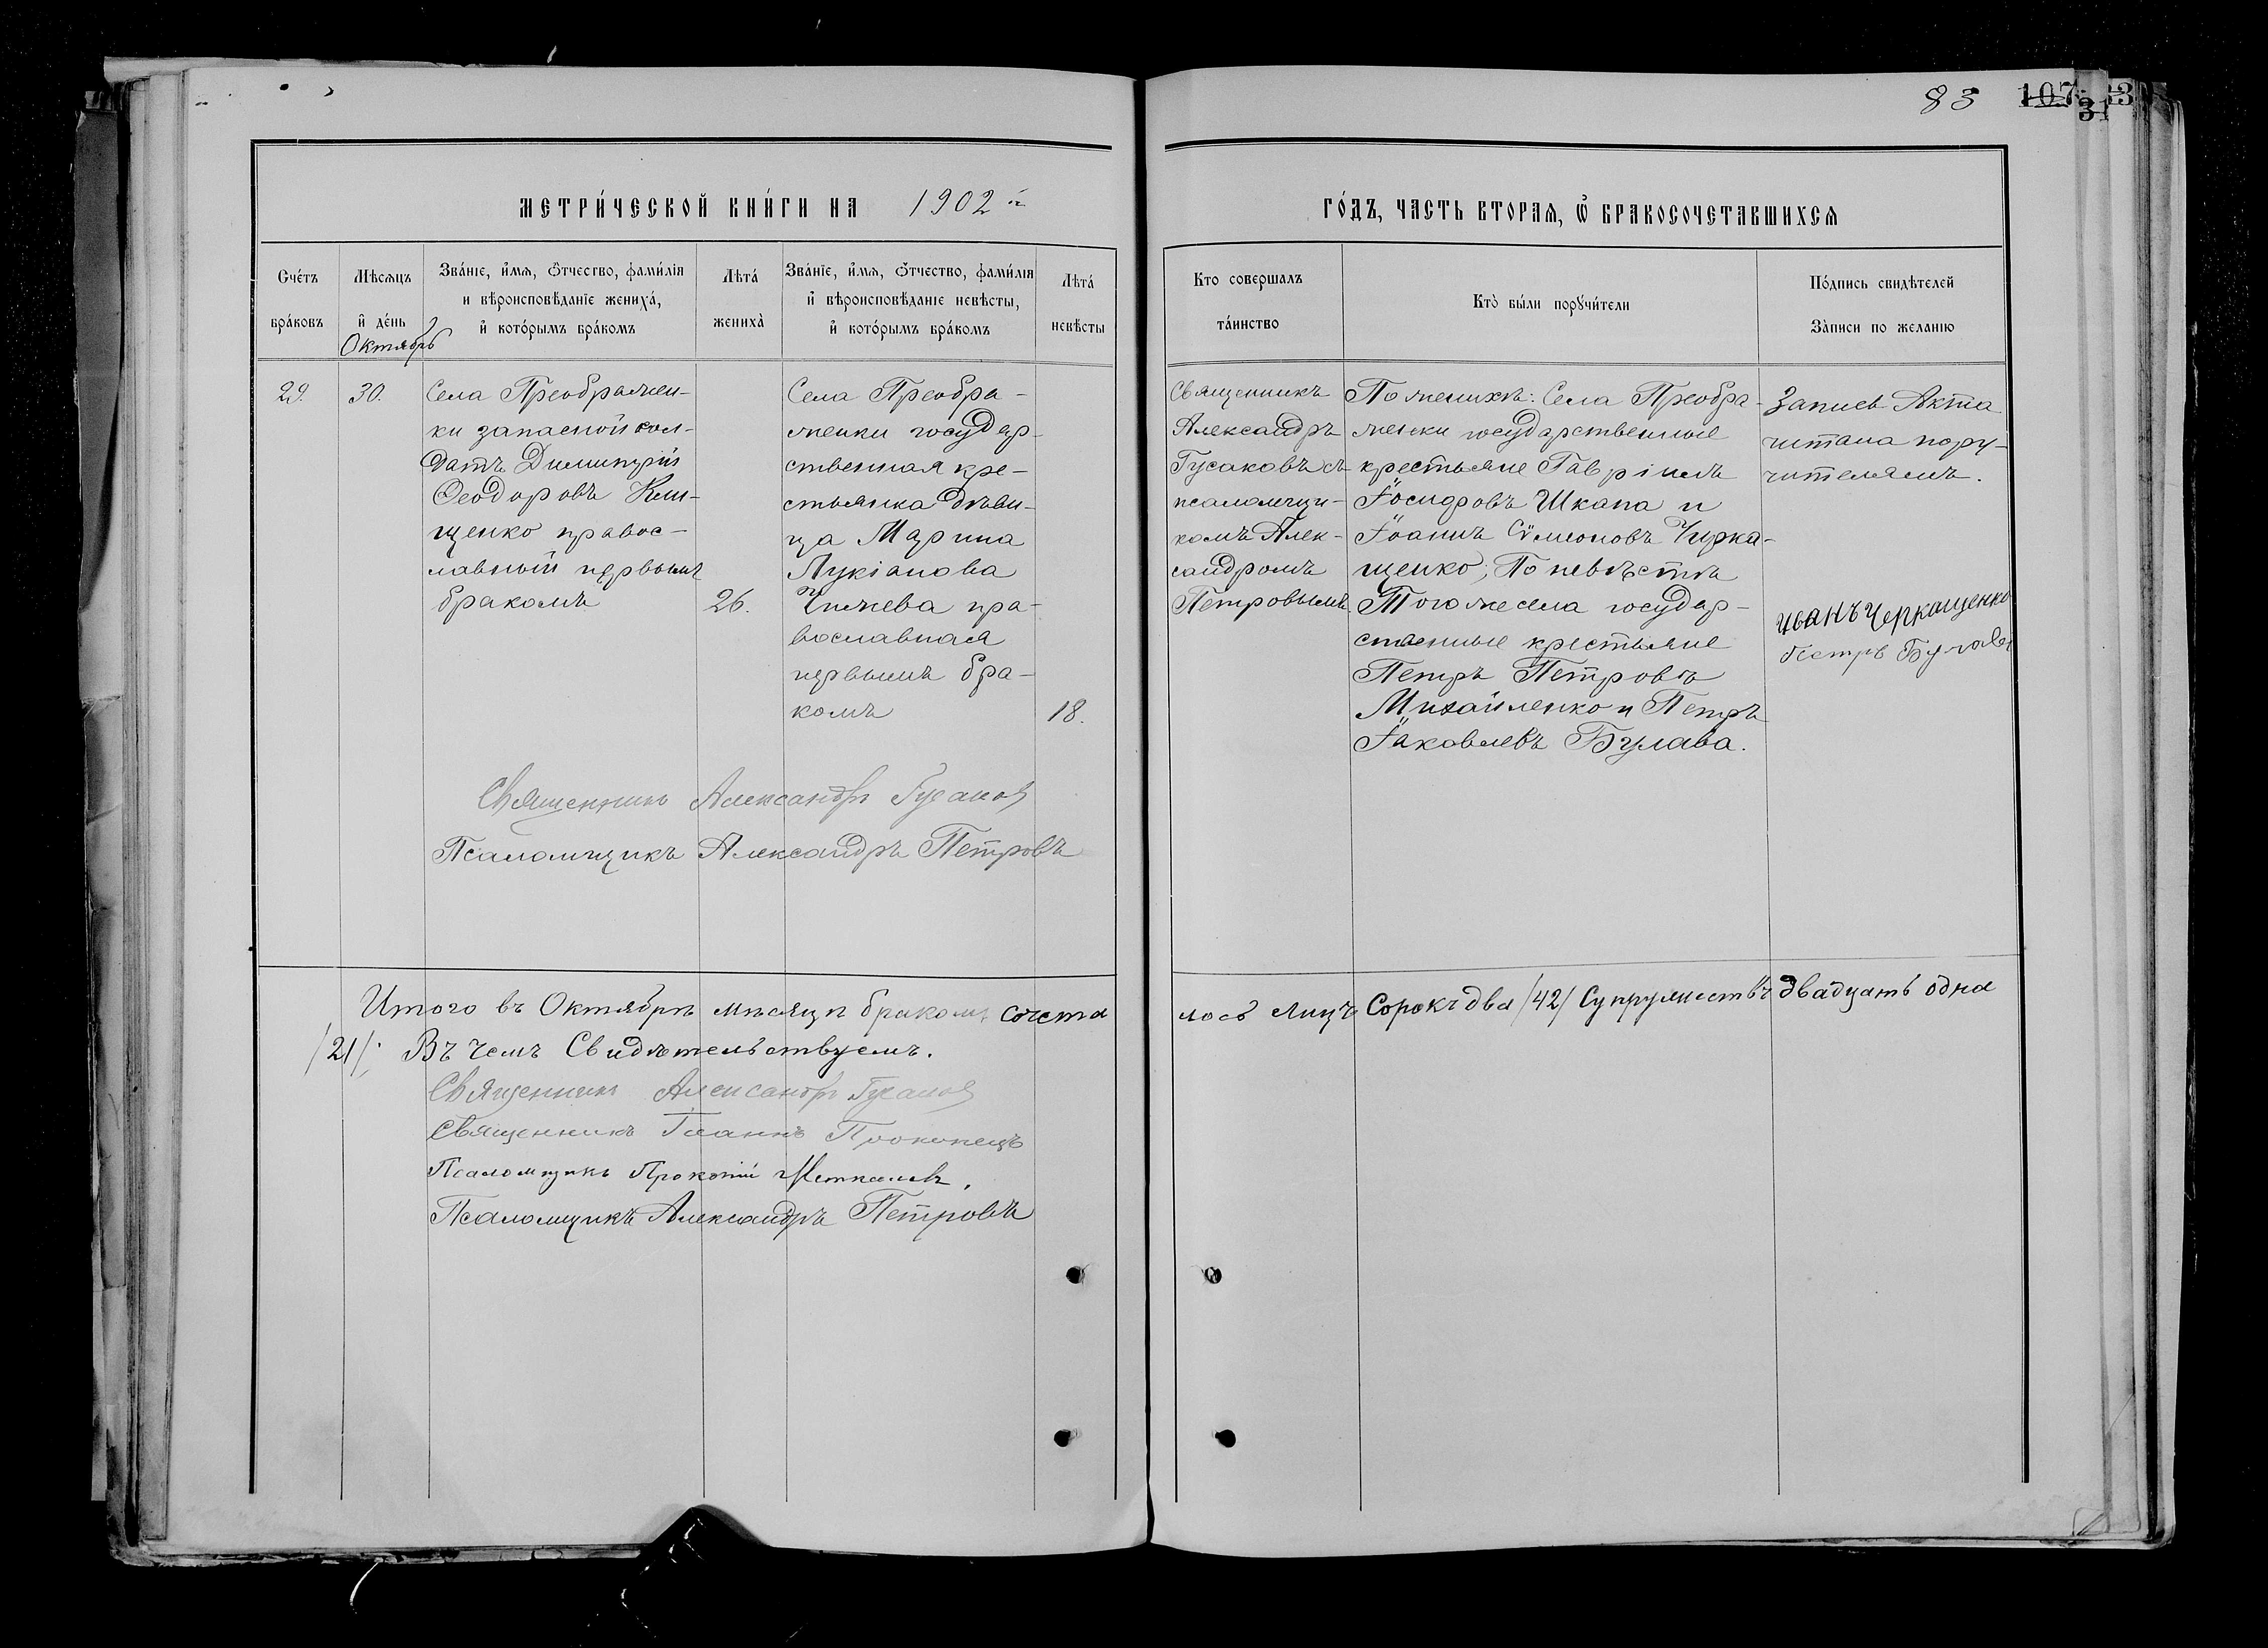 83 107 31
МЕТРИ́ЧЕСКОЙ КНИ́ГИ НА 1902 й
ГО́ДЪ, ЧАСТЬ ВТОРАѦ, Ѡ БРАКОСОЧЕТАВШИХСѦ
Сче́тъ бра́ковъ
Мѣсѧцъ и́ де́нь
Октябрь
Зва́нїе, и́мѧ, ѻ҆́тчество, фами́лїѧ
и вѣроисповѣ́данїе жениха́,
и҆ кото́рымъ бра́комъ
Лѣта́ жениха̀
Зва́нїе, и́мѧ, ѻ҆́тчество, фами́лїѧ
и҆ вѣроисповѣ́данїе невѣ́сты,
и҆ кото́рымъ бра́комъ
Лѣта́ невѣ́сты
Кто совершалъ та́инство
Кто̀ бы́ли порꙋчи́тели
По́дпись свидѣ́телей
За̀писи по жела́нїю
29.
30.
Села Преображен-
ки запасной сол-
датъ Димитрій
Ѳеодоровъ
православный первымъ
бракомъ
26.
Села Преобра-
женки государ-
ственная кре-
стьянка дѣви-
ца Марина
Лукіанова
пра-
вославная
первымъ бра-
комъ
18.
Священникъ
Александръ
Гусаковъ съ
псаломщи-
комъ Алек-
сандромъ
Петровымъ.
По женихѣ: Села Преобра-
женки государственные
крестьяне Гавріилъ
Іосифовъ Шкапа и
Іоаннъ Сѵмеоновъ Чирка-
щенко; По невѣстѣ
Того же села государ-
ственные крестьяне
Петръ Петровъ
Михайленко и Петръ
Іаковлевъ Булава.
Запись Акта
читана пору-
чителямъ.
Иванъ Черкащенко
Петръ Булава
Священникъ Александръ Гусаковъ
Псаломщикъ Александръ Петровъ
Итого въ Октябрѣ мѣсяцѣ бракомъ сочета
лось лицъ Сорокъ два /42/ Супружествъ двадцать одна
/21/; Въ чемъ Свидѣтельствуемъ.
Священникъ Александръ Гусаковъ
Священникъ Іоаннъ
Псаломщикъ Прокопій
Псаломщикъ Александръ Петровъ